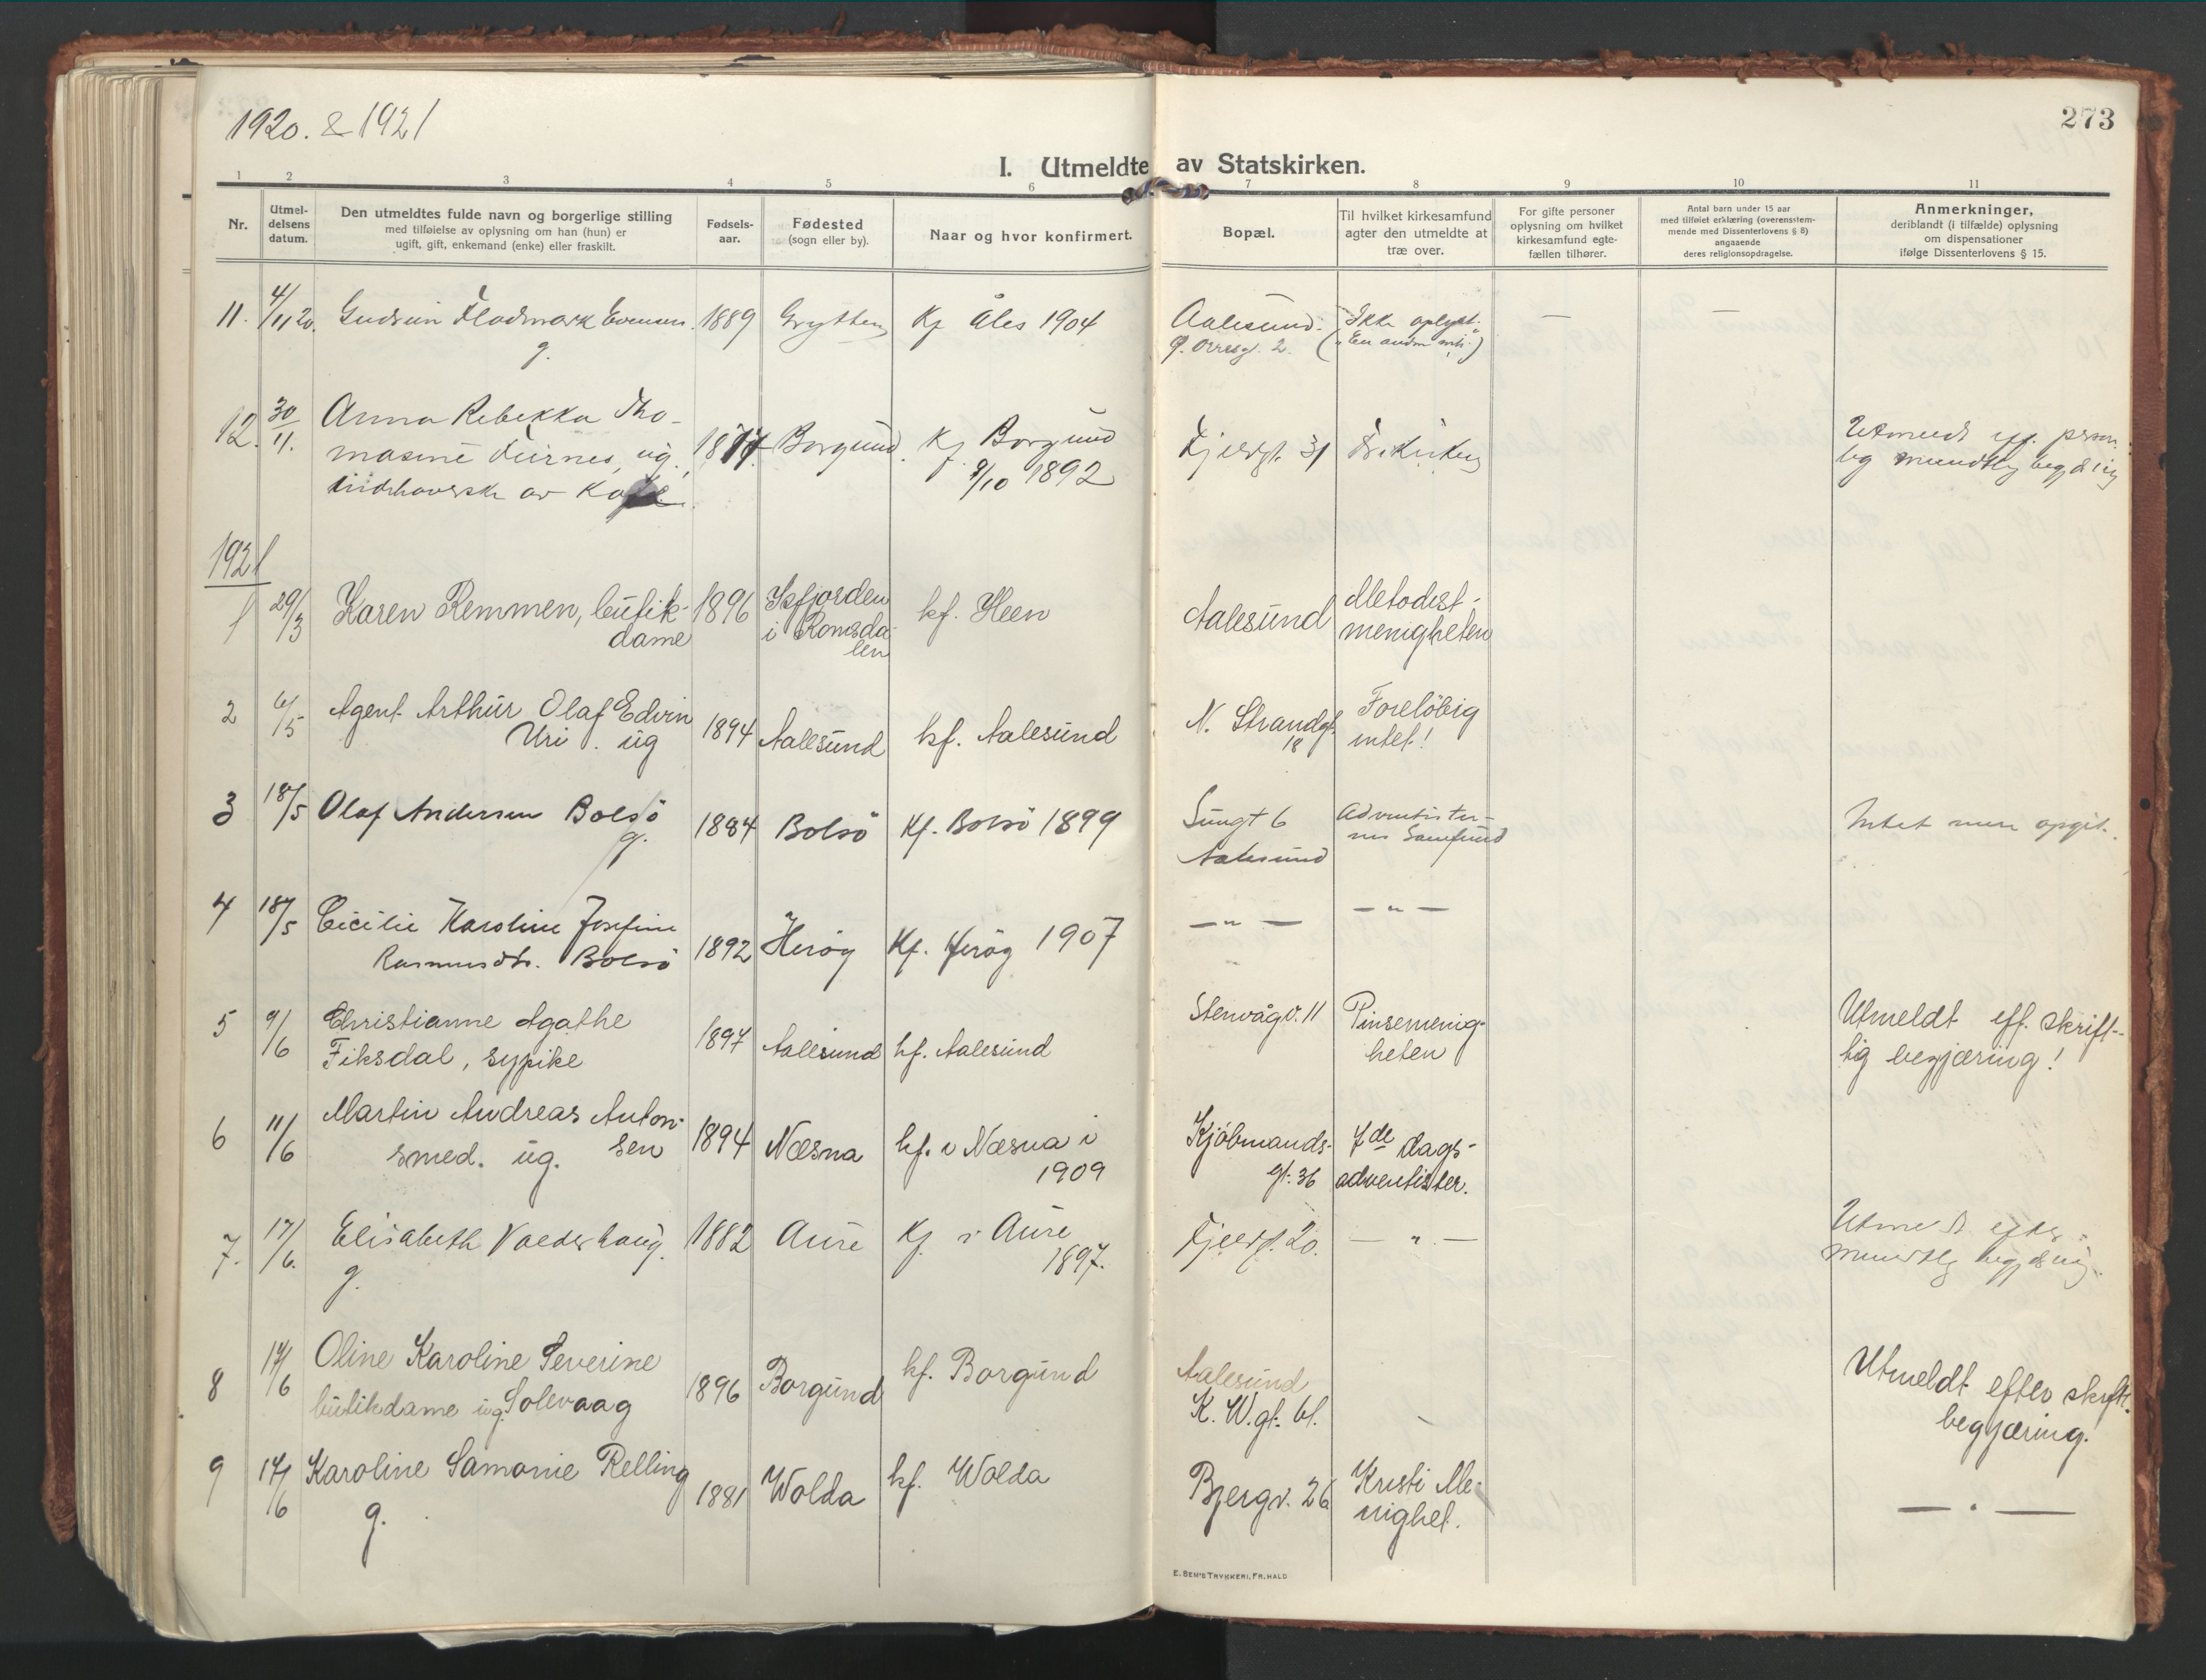 1920. & 1921
273
I. Utmeldte av Statskirken.
1 2 3 4 5 6 7 8 9 10 11
Nr.
Utmel-
delsens
datum.
Den utmeldtes fulde navn og borgerlige stilling
med tilføielse av oplysning om han (hun) er
ugift, gift, enkemand (enke) eller fraskilt.
Fødsels-
aar.
Fødested
(sogn eller by).
Naar og hvor konfirmert.
Bopæl.
Til hvilket kirkesamfund
agter den utmeldte at
træ over.
For gifte personer
oplysning om hvilket
kirkesamfund egte-
fællen tilhører.
Antal barn under 15 aar
med tilføiet erklæring (overensstem-
mende med Dissenterlovens § 8)
angaaende
deres religionsopdragelse.
Anmerkninger,
deriblandt (i tilfælde) oplysning
om dispensationer
ifølge Dissenterlovens § 15.
11. 4/11 20. Gudrun Fladmark 1889 Grytten Kf Åles 1904 Aalesund. Ikke oplyst. — —
g.
12. 30/11. Anna Rebekka Tho-
masine ug. 1877 Borgund. Kf. Borgund
9/10 1892
31 Frikirken
inderhaverske av Kafe.
1921
1 29/3 Karen Remmen, butik-
dame
1896 Isfjorden
i Romsda-
len
kf. Heen Aalesund Metodist-
menigheten
2 6/5 Agent Arthur Olaf Edvin
Uri. ug
1894 Aalesund kf. Aalesund N. Strandgt.
18
Foreløbig
intet!
3 18/5 Olaf Andersen Bolsö
g.
1884 Bolsö Kf. Bolsö 1899 6
Aalesund
Adventister-
nes Samfund
Intet mere opgit.
4 18/5 Cicilie Karoline Josefine
Rasmusdtr. Bolsö
1892 Heröy Kf. Heröy 1907 — " — — " —
5 9/6 Christianne Agathe
Fiksdal, sypike
1897 Aalesund kf. Aalesund Stenvågv. 11 Pinsemenig-
heten
Utmeldt eft. skrift-
lig begjæring!
6 11/6 Martin Andreas Anton-
sen
smed. ug.
1894 Næsna kf. i Næsna i
1909
Kjöbmands-
gt. 36
7de dags-
adventister.
7. 17/6. Elisabeth Valderhaug.
g.
1882 Aure Kf i Aure
1897.
20. — " —
Utmeldt efter
mundtlig begjæring.
8 17/6 Oline Karoline Severine
Solevaag
butikdame ug.
1896 Borgund kf. Borgund Aalesund
K. W. gt. 61.
-
Utmeldt efter skrft.
begjæring.
9 17/6 Karoline Samonie Relling
g.
1881 Wolda kf. Wolda Bjergv. 26 Kristi Me-
nighet.
— " —
E. SEM'S TRYKKERI, FR. HALD